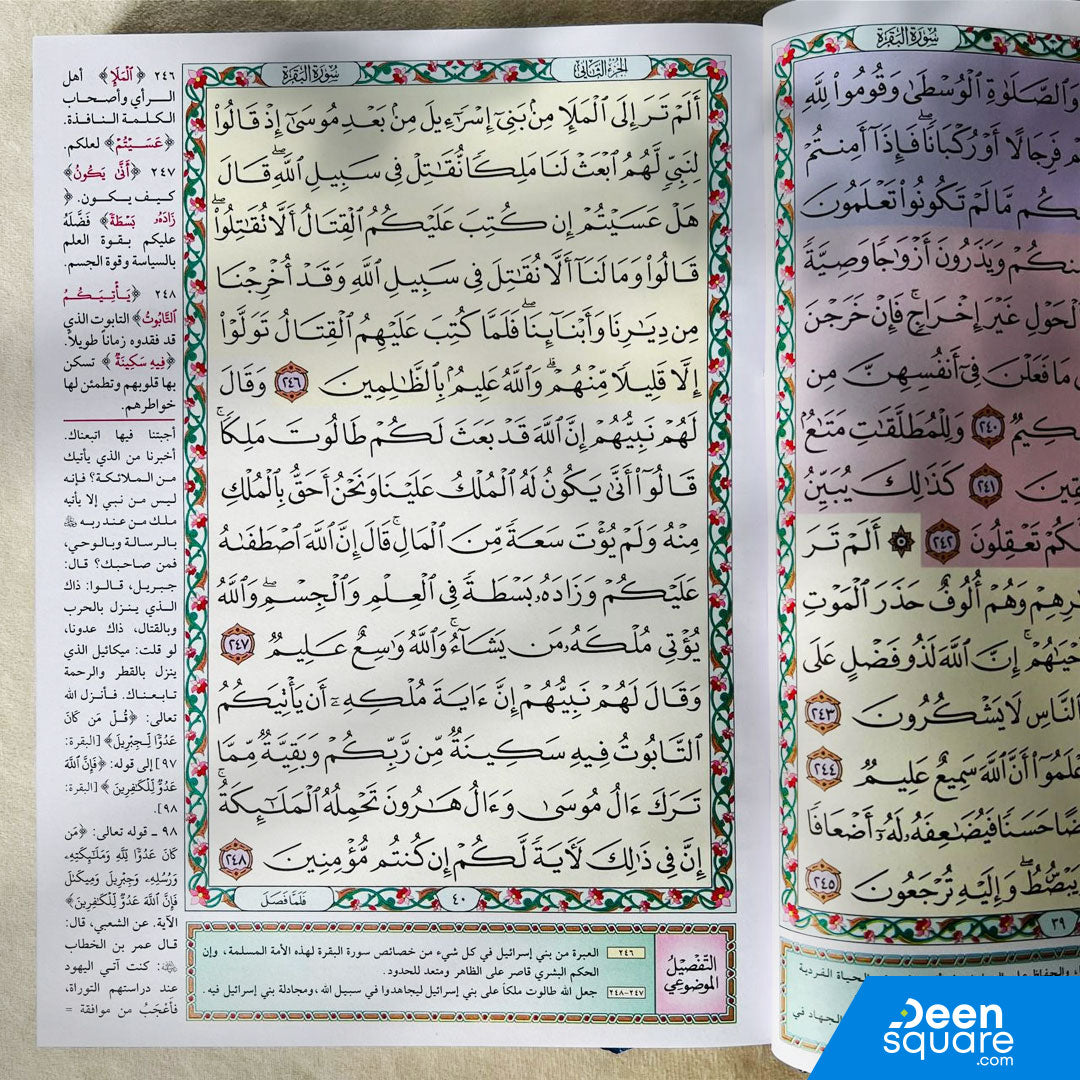 سُورَةُ البَقَرَةِ
وَٱلصَّلَوٰةِ ٱلْوُسْطَىٰ وَقُومُوا۟ لِلَّهِ
فَرِجَالًا أَوْ رُكْبَانًا ۖ فَإِذَآ أَمِنتُمْ
مَّا لَمْ تَكُونُوا۟ تَعْلَمُونَ
وَيَذَرُونَ أَزْوَٰجًا وَصِيَّةً
ٱلْحَوْلِ غَيْرَ إِخْرَاجٍ ۚ فَإِنْ خَرَجْنَ
مَا فَعَلْنَ فِىٓ أَنفُسِهِنَّ مِن
٢٤٠ وَلِلْمُطَلَّقَٰتِ مَتَٰعٌۢ
٢٤١ كَذَٰلِكَ يُبَيِّنُ
تَعْقِلُونَ ٢٤٢ ۞ أَلَمْ تَرَ
وَهُمْ أُلُوفٌ حَذَرَ ٱلْمَوْتِ
إِنَّ ٱللَّهَ لَذُو فَضْلٍ عَلَى
ٱلنَّاسِ لَا يَشْكُرُونَ ٢٤٣
أَنَّ ٱللَّهَ سَمِيعٌ عَلِيمٌ ٢٤٤
حَسَنًا فَيُضَٰعِفَهُۥ لَهُۥٓ أَضْعَافًا
وَإِلَيْهِ تُرْجَعُونَ ٢٤٥
٣٩
الحياة الفردية
الجهاد في
الجزء الثاني
سُورَةُ البَقَرَةِ
أَلَمْ تَرَ إِلَى ٱلْمَلَإِ مِنۢ بَنِىٓ إِسْرَٰٓءِيلَ مِنۢ بَعْدِ مُوسَىٰٓ إِذْ قَالُوا۟
لِنَبِىٍّ لَّهُمُ ٱبْعَثْ لَنَا مَلِكًا نُّقَٰتِلْ فِى سَبِيلِ ٱللَّهِ ۖ قَالَ
هَلْ عَسَيْتُمْ إِن كُتِبَ عَلَيْكُمُ ٱلْقِتَالُ أَلَّا تُقَٰتِلُوا۟ ۖ
قَالُوا۟ وَمَا لَنَآ أَلَّا نُقَٰتِلَ فِى سَبِيلِ ٱللَّهِ وَقَدْ أُخْرِجْنَا
مِن دِيَٰرِنَا وَأَبْنَآئِنَا ۖ فَلَمَّا كُتِبَ عَلَيْهِمُ ٱلْقِتَالُ تَوَلَّوْا۟
إِلَّا قَلِيلًا مِّنْهُمْ ۗ وَٱللَّهُ عَلِيمٌۢ بِٱلظَّٰلِمِينَ ٢٤٦ وَقَالَ
لَهُمْ نَبِيُّهُمْ إِنَّ ٱللَّهَ قَدْ بَعَثَ لَكُمْ طَالُوتَ مَلِكًا ۚ
قَالُوٓا۟ أَنَّىٰ يَكُونُ لَهُ ٱلْمُلْكُ عَلَيْنَا وَنَحْنُ أَحَقُّ بِٱلْمُلْكِ
مِنْهُ وَلَمْ يُؤْتَ سَعَةً مِّنَ ٱلْمَالِ ۚ قَالَ إِنَّ ٱللَّهَ ٱصْطَفَىٰهُ
عَلَيْكُمْ وَزَادَهُۥ بَسْطَةً فِى ٱلْعِلْمِ وَٱلْجِسْمِ ۖ وَٱللَّهُ
يُؤْتِى مُلْكَهُۥ مَن يَشَآءُ ۚ وَٱللَّهُ وَٰسِعٌ عَلِيمٌ ٢٤٧
وَقَالَ لَهُمْ نَبِيُّهُمْ إِنَّ ءَايَةَ مُلْكِهِۦٓ أَن يَأْتِيَكُمُ
ٱلتَّابُوتُ فِيهِ سَكِينَةٌ مِّن رَّبِّكُمْ وَبَقِيَّةٌ مِّمَّا
تَرَكَ ءَالُ مُوسَىٰ وَءَالُ هَٰرُونَ تَحْمِلُهُ ٱلْمَلَٰٓئِكَةُ ۚ
إِنَّ فِى ذَٰلِكَ لَءَايَةً لَّكُمْ إِن كُنتُم مُّؤْمِنِينَ ٢٤٨
٤٠
فَلَمَّا فَصَلَ
التَّفْصِيلُ الموضوعي
٢٤٦ العبرة من بني إسرائيل في كل شيء من خصائص سورة البقرة لهذه الأمة المسلمة، وإن
الحكم البشري قاصر على الظاهر ومتعد للحدود.
٢٤٧-٢٤٨ جعل الله طالوت ملكاً على بني إسرائيل ليجاهدوا في سبيل الله، ومجادلة بني إسرائيل فيه.
٢٤٦ ﴿ٱلْمَلَإِ﴾ أهل
الـرأي وأصـحـاب
الكلمة النافذة.
﴿عَسَيْتُمْ﴾ لعلكم.
٢٤٧ ﴿أَنَّىٰ يَكُونُ﴾
كـيـف يـكـون. ﴿
زَادَهُۥ بَسْطَةً﴾ فَضَّلَهُ
عليكم بـقـوة العلم
بالسياسة وقوة الجسم.
٢٤٨ ﴿يَأْتِيَكُمُ
ٱلتَّابُوتُ﴾ التابوت الذي
قد فقدوه زماناً طويلاً.
﴿فِيهِ سَكِينَةٌ﴾ تسكن
بها قلوبهم وتطمئن لها
خواطرهم.
أجبتنا فيها اتبعناك.
أخبرنا من الذي يأتيك
من المـلائـكـة؟ فإنه
ليس من نبي إلا يأتيه
ملك من عند ربه ﷻ
بالرسالة وبالوحي،
فمن صاحبك؟ قال:
جبريل، قالـوا: ذاك
الـذي ينـزل بالحرب
وبالقتال، ذاك عدونا،
لو قلت: ميكائيل الذي
ينزل بالقطر والرحمة
تابعناك. فأنـزل الله
تعالى: ﴿قُلْ مَن كَانَ
عَدُوًّا لِّجِبْرِيلَ﴾ [البقرة:
٩٧] إلى قوله: ﴿فَإِنَّ ٱللَّهَ
عَدُوٌّ لِّلْكَٰفِرِينَ﴾ [البقرة:
٩٨].
٩٨ ـ قوله تعالى: ﴿مَن
كَانَ عَدُوًّا لِّلَّهِ وَمَلَٰٓئِكَتِهِۦ
وَرُسُلِهِۦ وَجِبْرِيلَ وَمِيكَىٰلَ
فَإِنَّ ٱللَّهَ عَدُوٌّ لِّلْكَٰفِرِينَ﴾
الآية. عن الشعبي، قال:
قال عمر بن الخطاب
: كنت آتي اليهود
عند دراستهم التوراة،
فأَعْجَبُ من موافقة =
Deen
square
.com